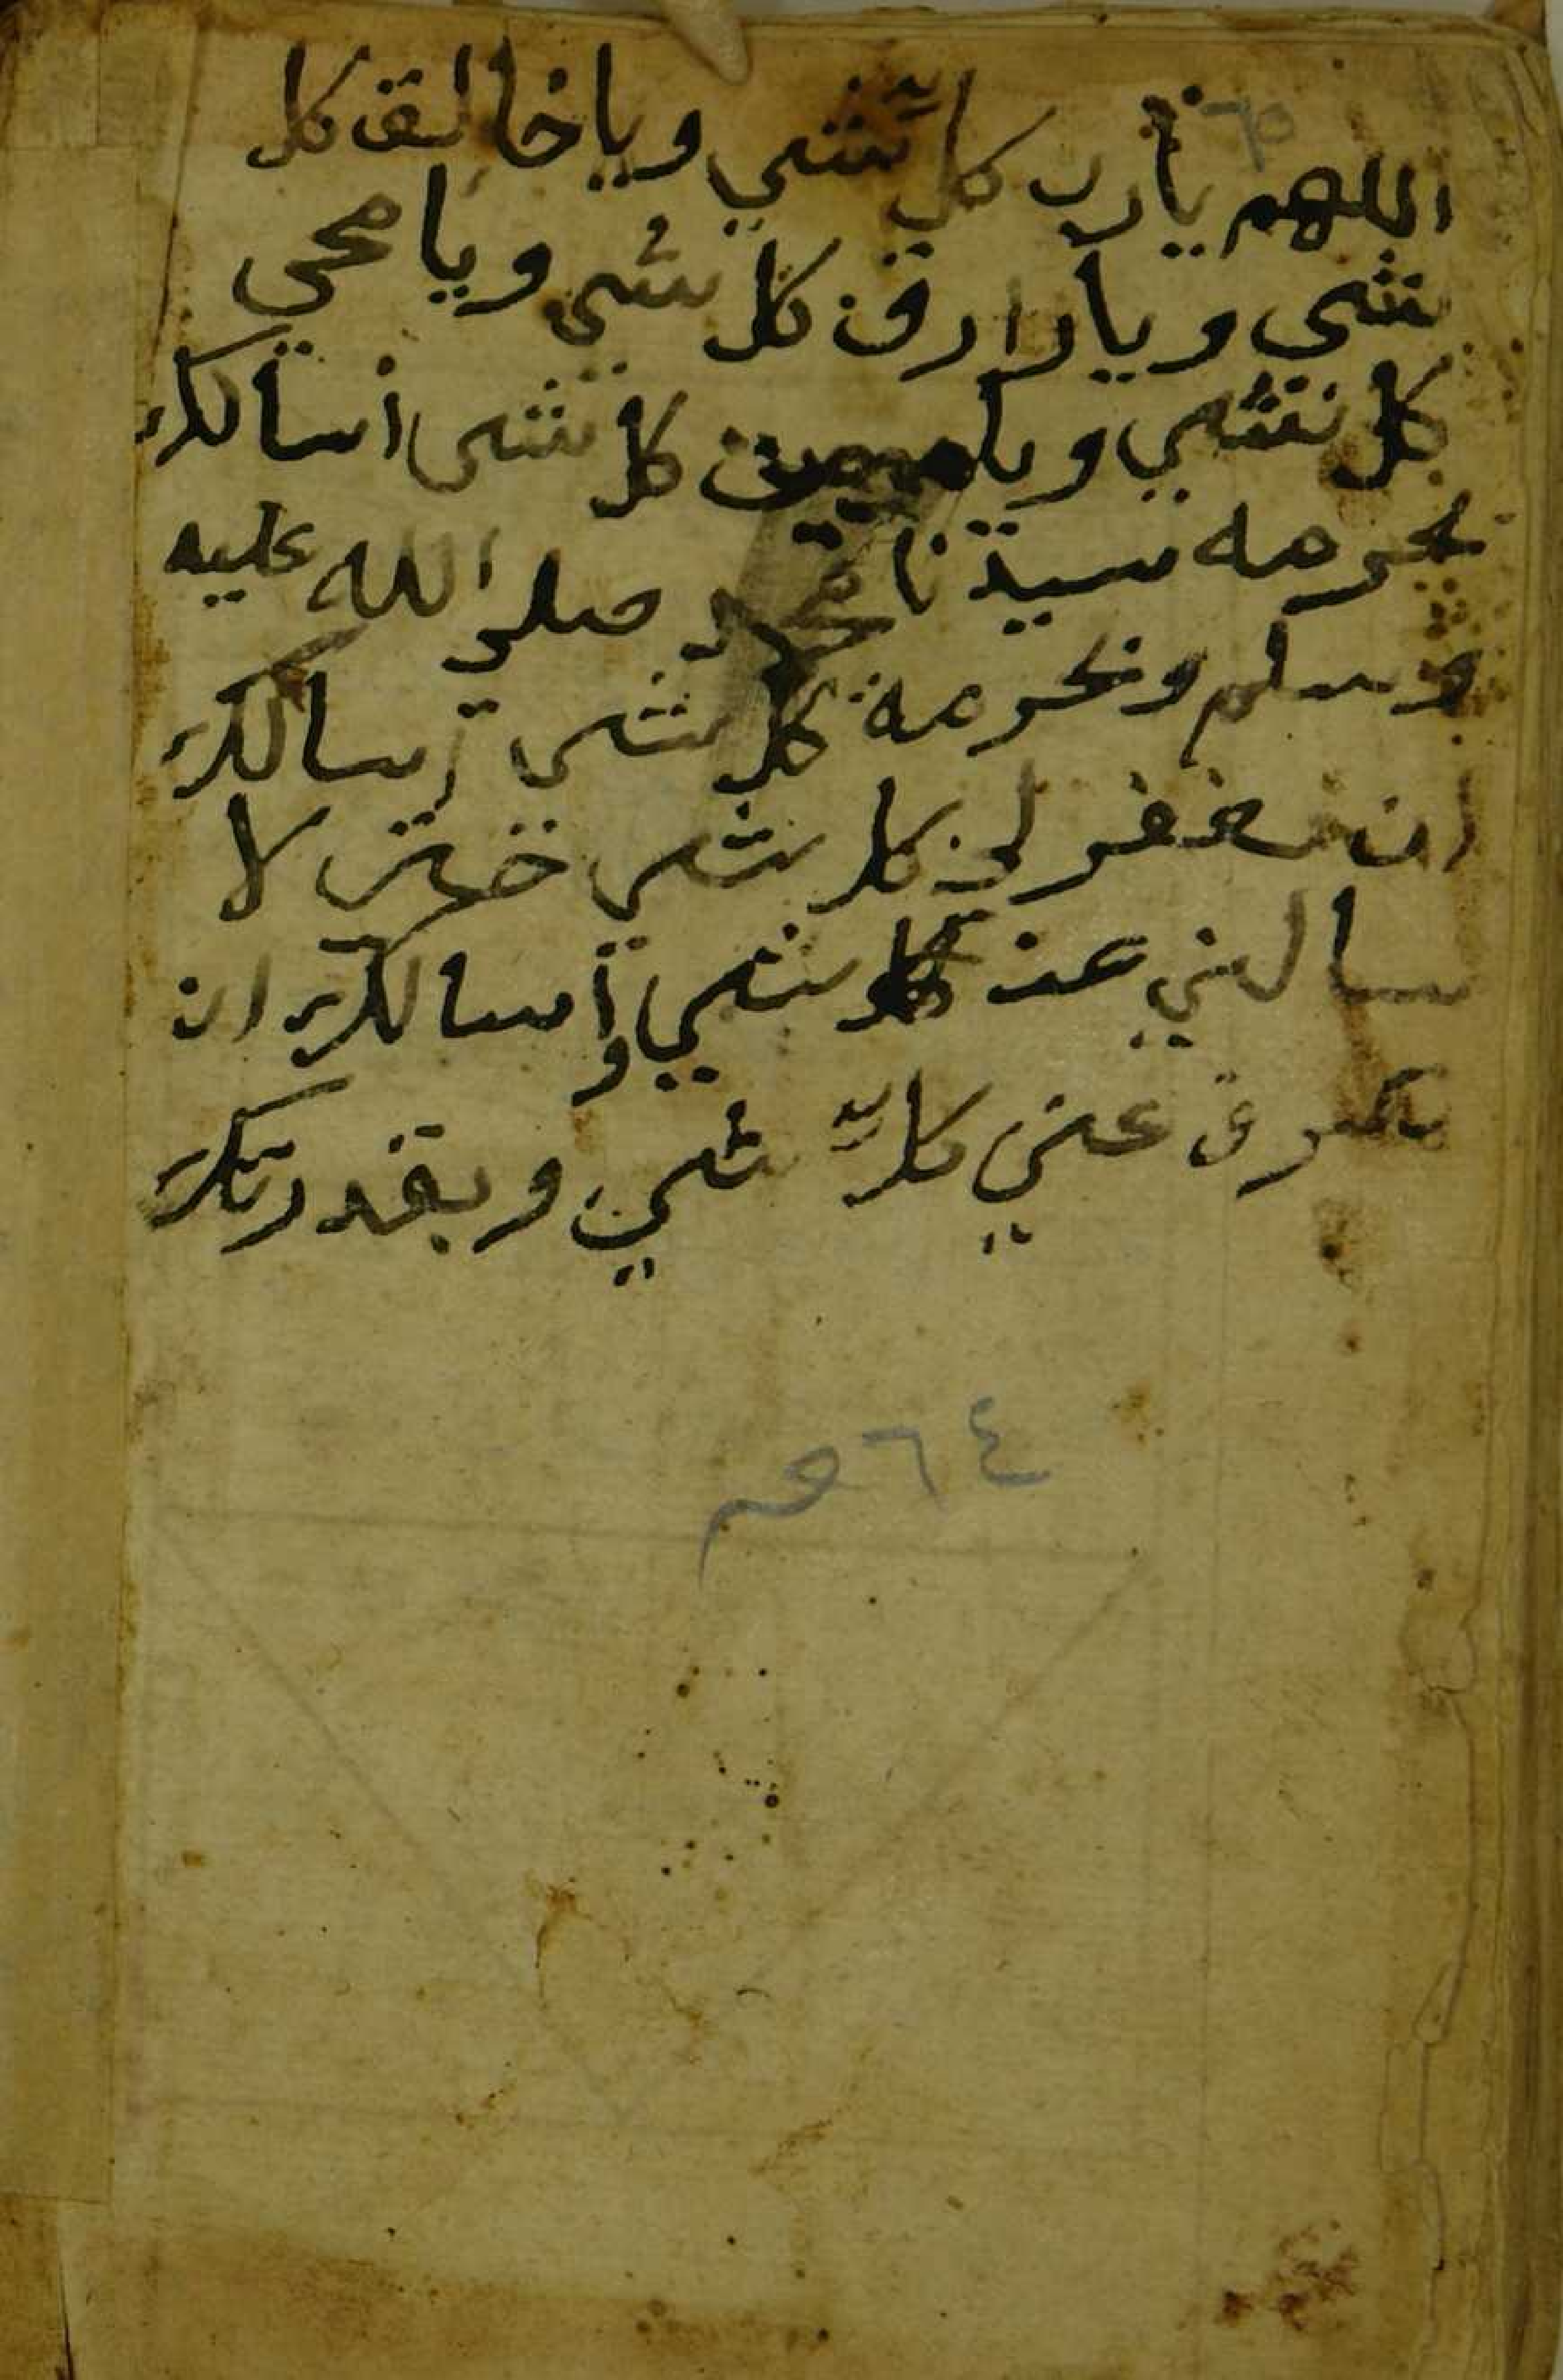 ٦٥
اللهم يا رب كل شي ويا خالق كل
شي ويا رازق كل شي ويا محي
كل شي ويا مميت كل شي أسالك
بحرمه سيدنا محمد صلى الله عليه
وسلم وبحرمة كل شي اسالك
ان تغفر لي كل شي حتى لا
تسالني عن كل شي وأسالك ان
عني كل شي وبقدرتك
٦٤